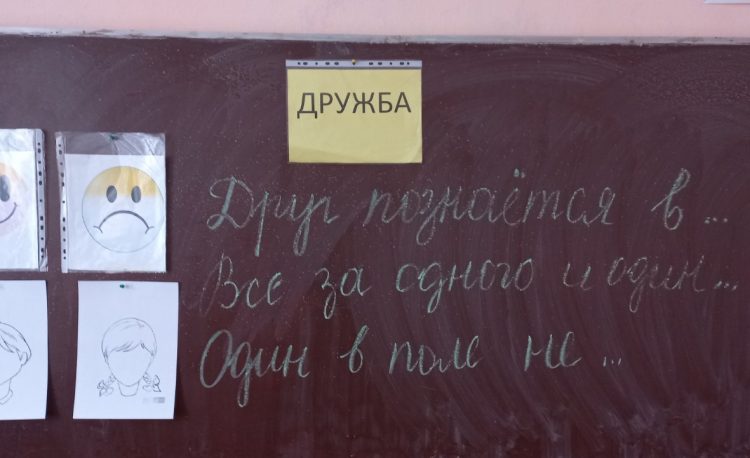 ДРУЖБА
Друг познаётся в...
Все за одного и один...
Один в поле не...